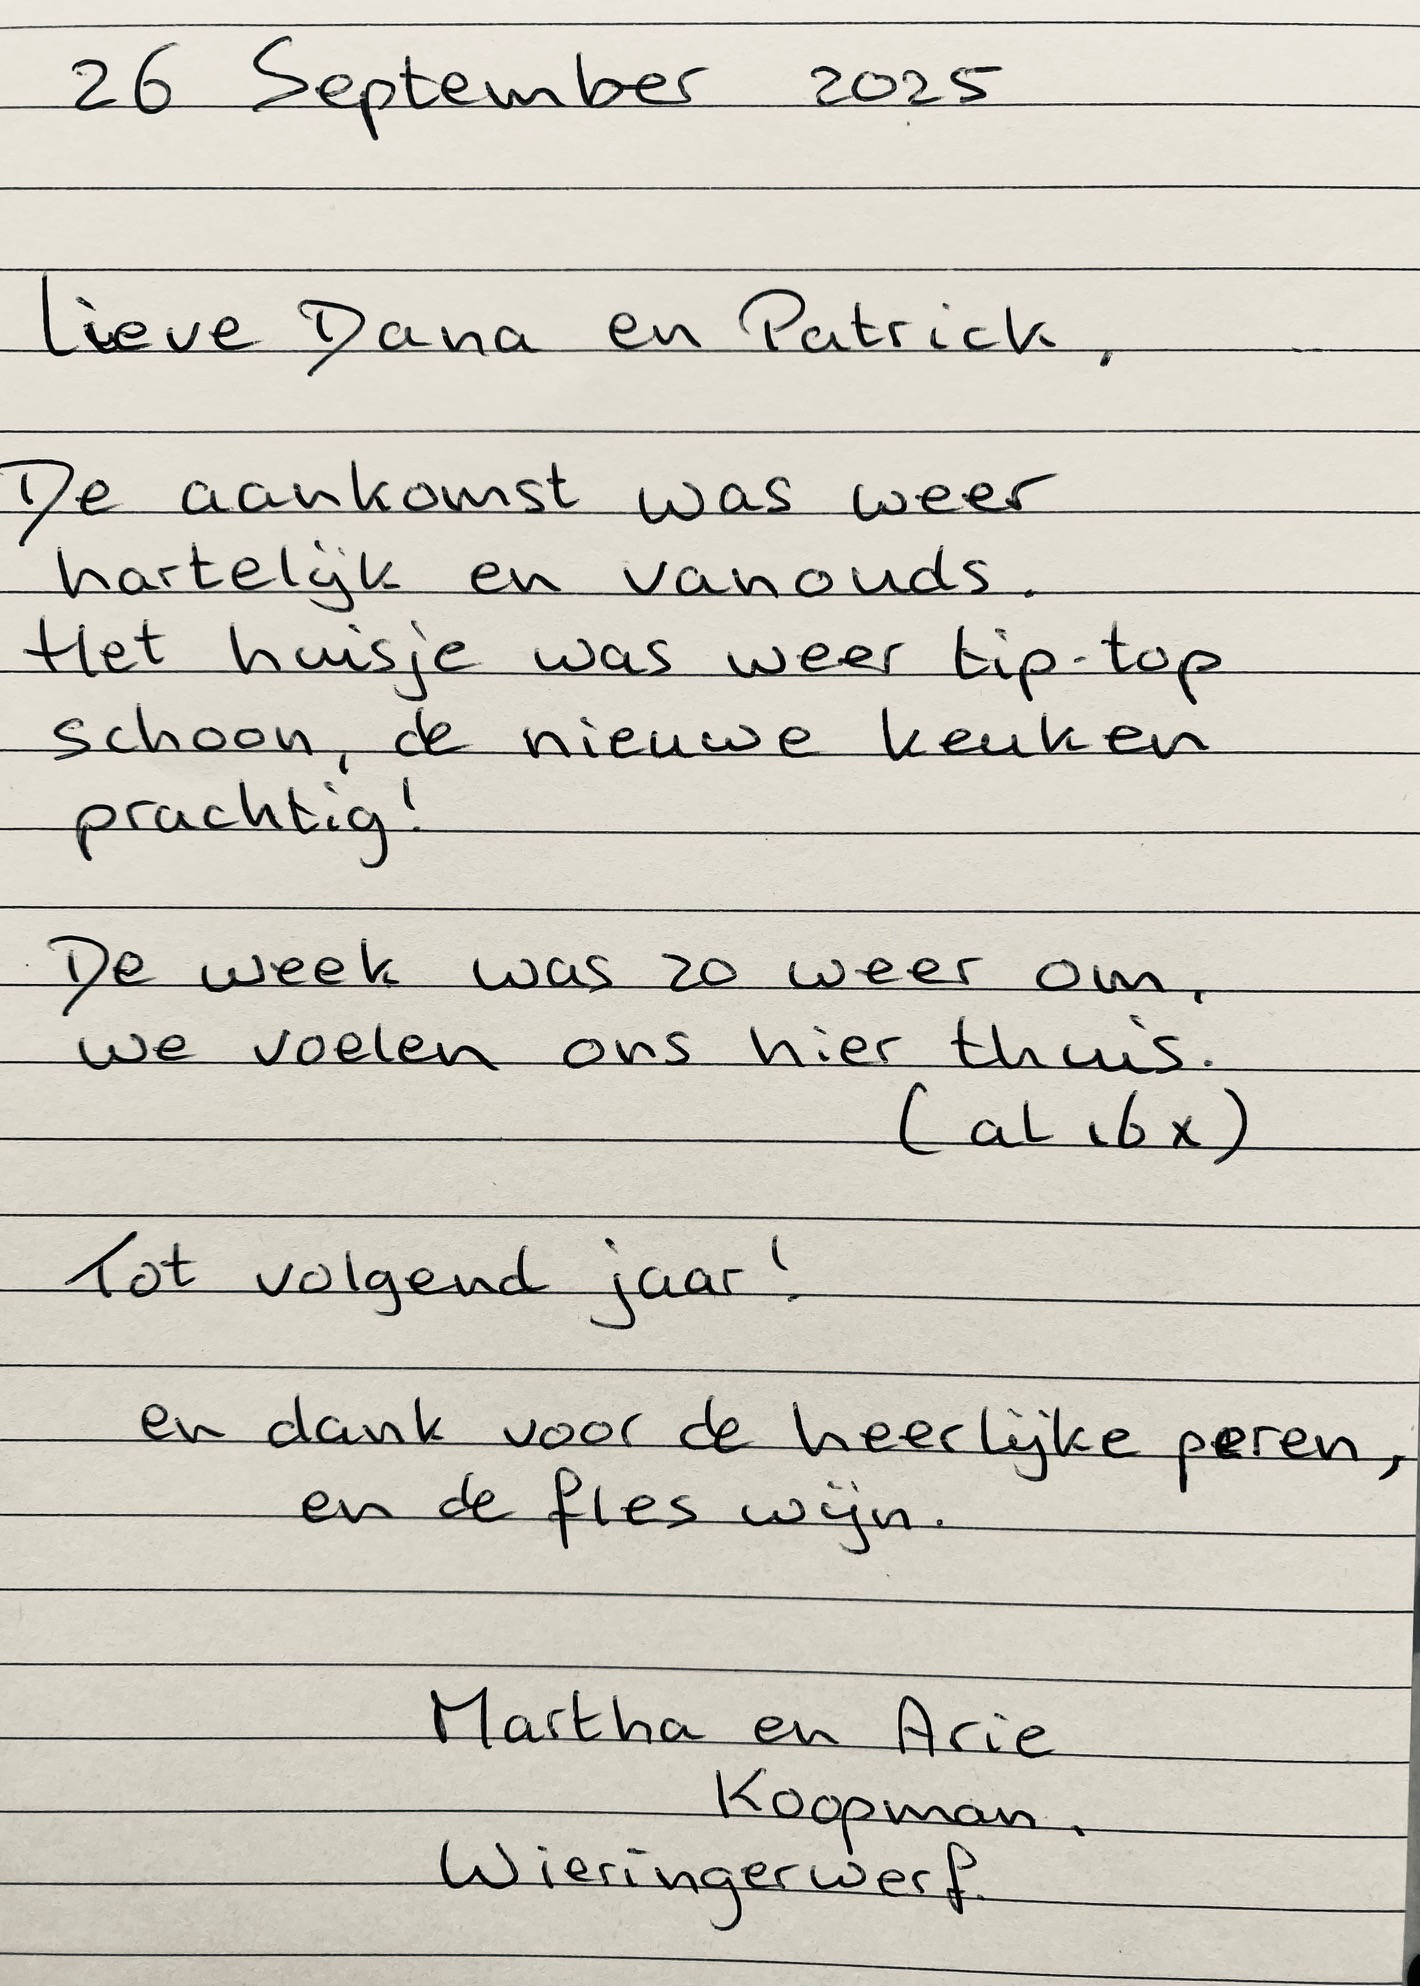 26 September 2025
Lieve Dana en Patrick,
De aankomst was weer
hartelijk en vanouds.
Het huisje was weer tip-top
schoon, de nieuwe keuken
prachtig!
De week was zo weer om,
we voelen ons hier thuis.
(al 16 x)
Tot volgend jaar!
en dank voor de heerlijke peren,
en de fles wijn.
Martha en Arie
Koopman.
Wieringerwerf.